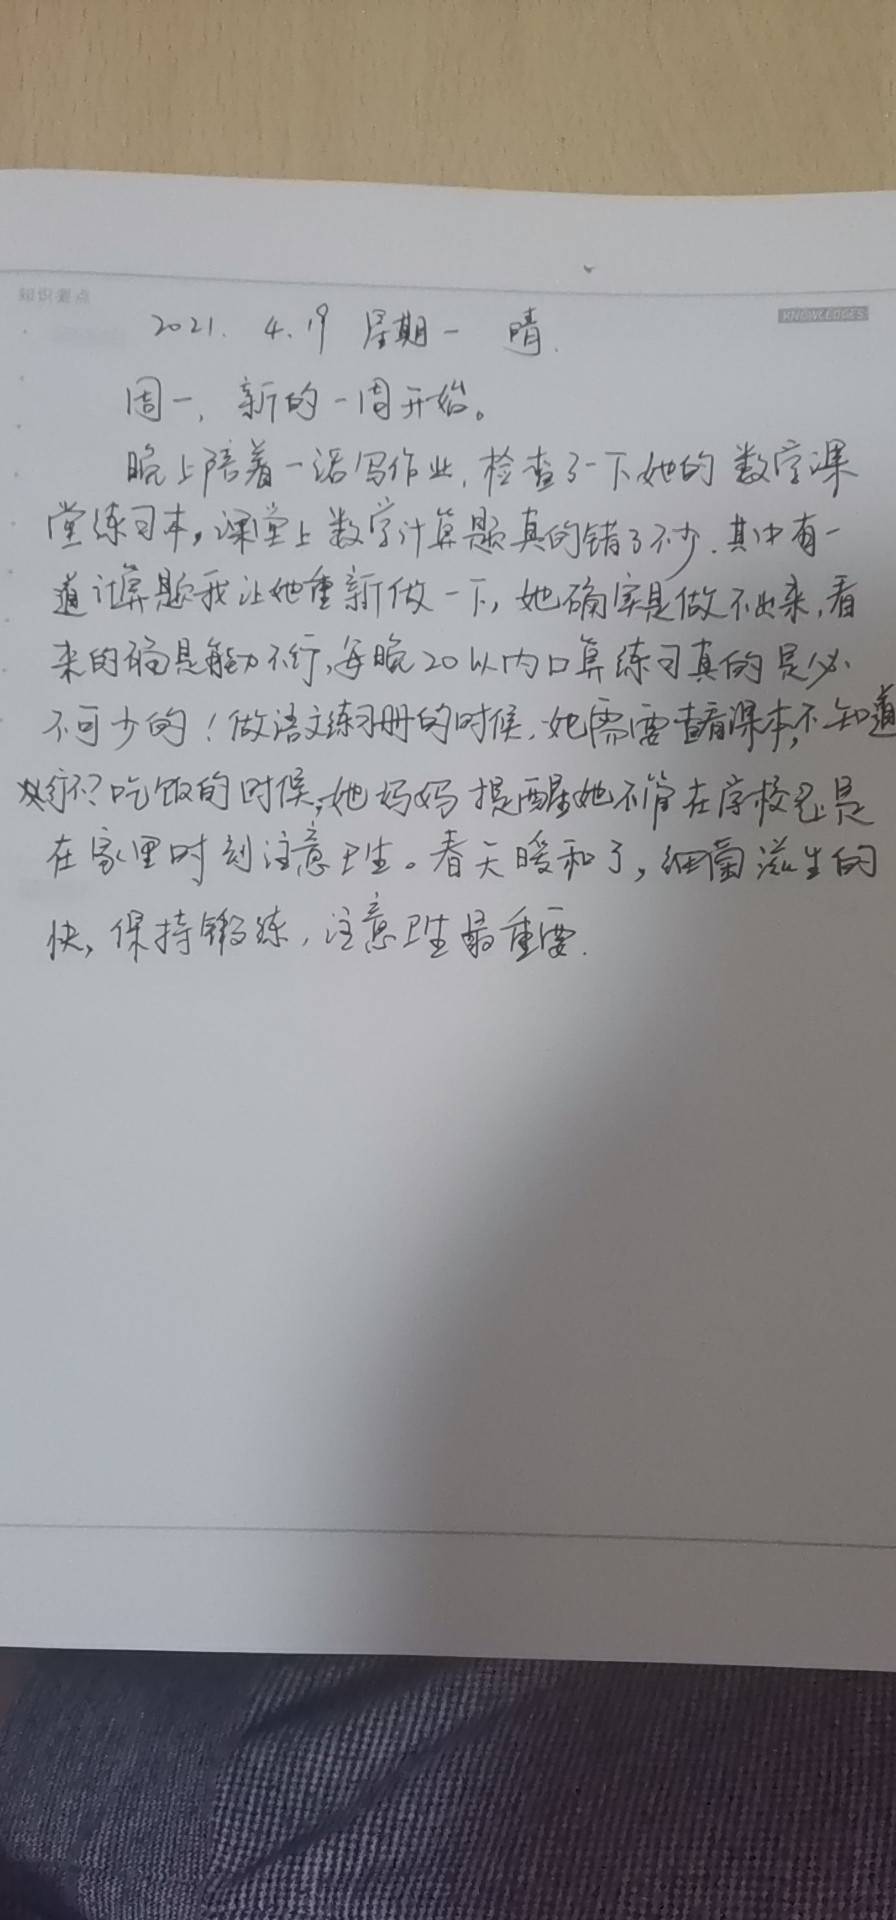 知识要点
KNOWLEDGES
2021. 4.19 星期一 晴.
周一, 新的一周开始。
晚上陪着一诺写作业, 检查了一下她的数学课
堂练习本, 课堂上数学计算题真的错了不少. 其中有一
道计算题我让她重新做一下, 她确实是做不出来, 看
来的确是能力不行, 每晚20以内口算练习真的是必
不可少的! 做语文练习册的时候, 她需要查看课本, 不知道
行不? 吃饭的时候, 她妈妈提醒她不管在学校还是
在家里时刻注意卫生。春天暖和了, 细菌滋生的
快, 保持锻练, 注意卫生最重要.